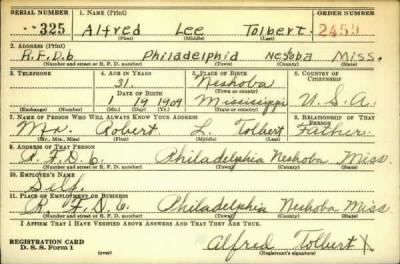 SERIAL NUMBER 1. NAME (Print) ORDER NUMBER
325 Alfred Lee Tolbert 2459
(First) (Middle) (Last)
2. ADDRESS (Print)
R.F.D.6 Philadelphid Neshoba Miss.
(Number and street or R. F. D. number) (Town) (County) (State)
3. TELEPHONE 4. AGE IN YEARS 5. PLACE OF BIRTH 6. COUNTRY OF CITIZENSHIP
31 Neshoba
DATE OF BIRTH (Town or county)
1 19 1909 Mississippi U.S.A.
(Exchange) (Number) (Mo.) (Day) (Yr.) (State or country)
7. NAME OF PERSON WHO WILL ALWAYS KNOW YOUR ADDRESS 8. RELATIONSHIP OF THAT PERSON
Mr. Robert L. Tolbert Father
(Mr., Mrs., Miss) (First) (Middle) (Last)
9. ADDRESS OF THAT PERSON
R.F.D.6. Philadelphia Neshoba Miss.
(Number and street or R. F. D. number) (Town) (County) (State)
10. EMPLOYER'S NAME
Self.
11. PLACE OF EMPLOYMENT OR BUSINESS
R.F.D.6 Philadelphia Neshoba Miss.
(Number and street or R. F. D. number) (Town) (County) (State)
I AFFIRM THAT I HAVE VERIFIED ABOVE ANSWERS AND THAT THEY ARE TRUE.
REGISTRATION CARD
D. S. S. Form 1 (over) Alfred Tolbert X
(Registrant's signature)